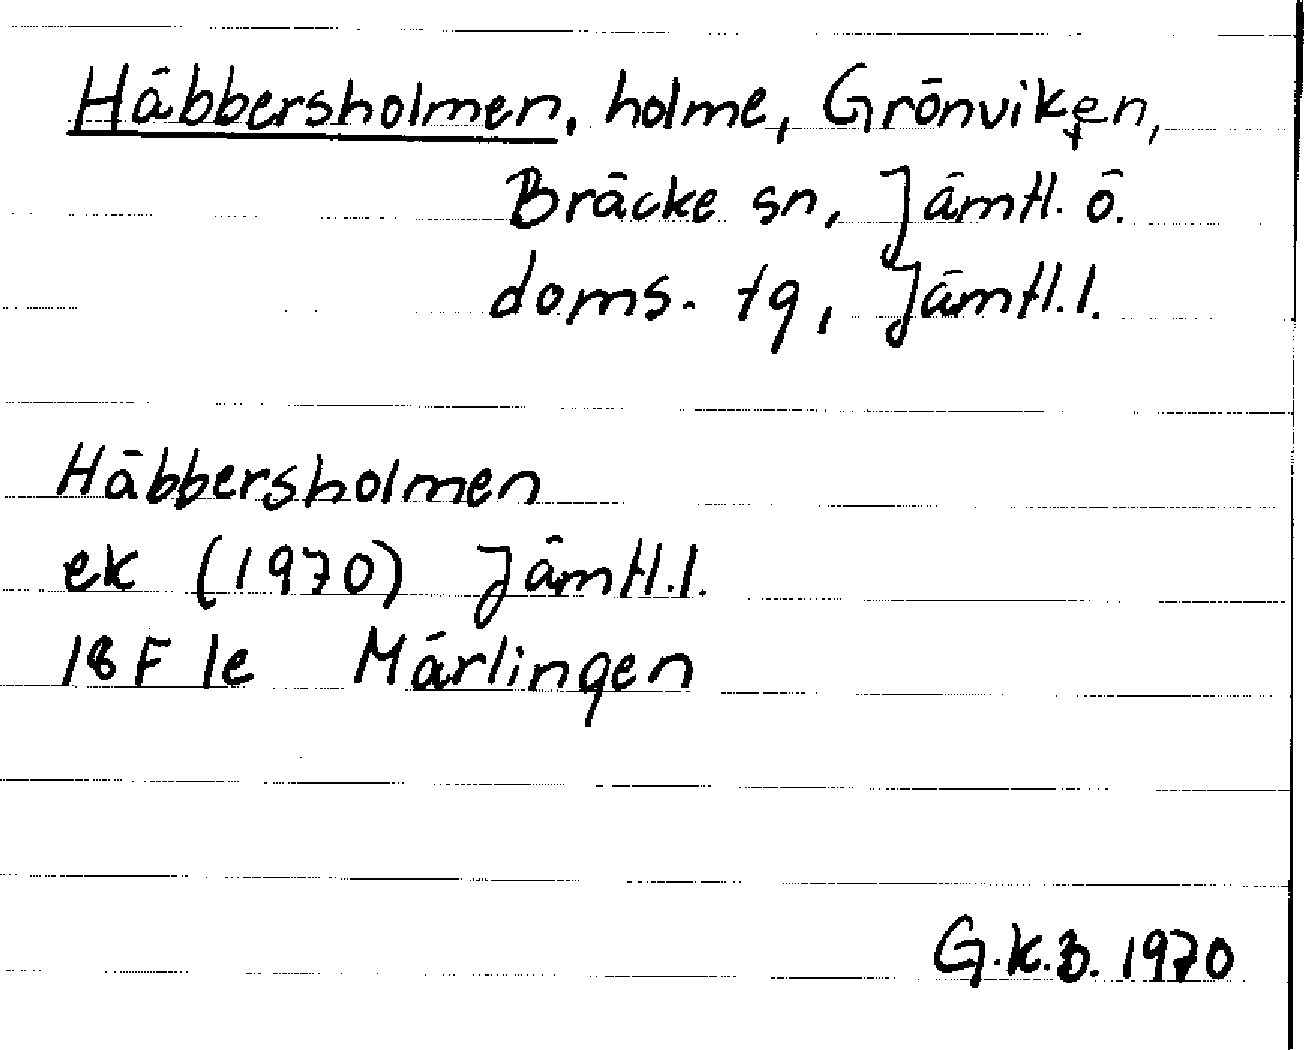 Häbbersholmen, holme, Grönviken,
Bräcke sn, Jämtl. ö.
doms. tg, Jämtl. l.
Häbbersholmen
ek (1970) Jämtl. l.
18 F 1e Märlingen
G.K.B. 1970